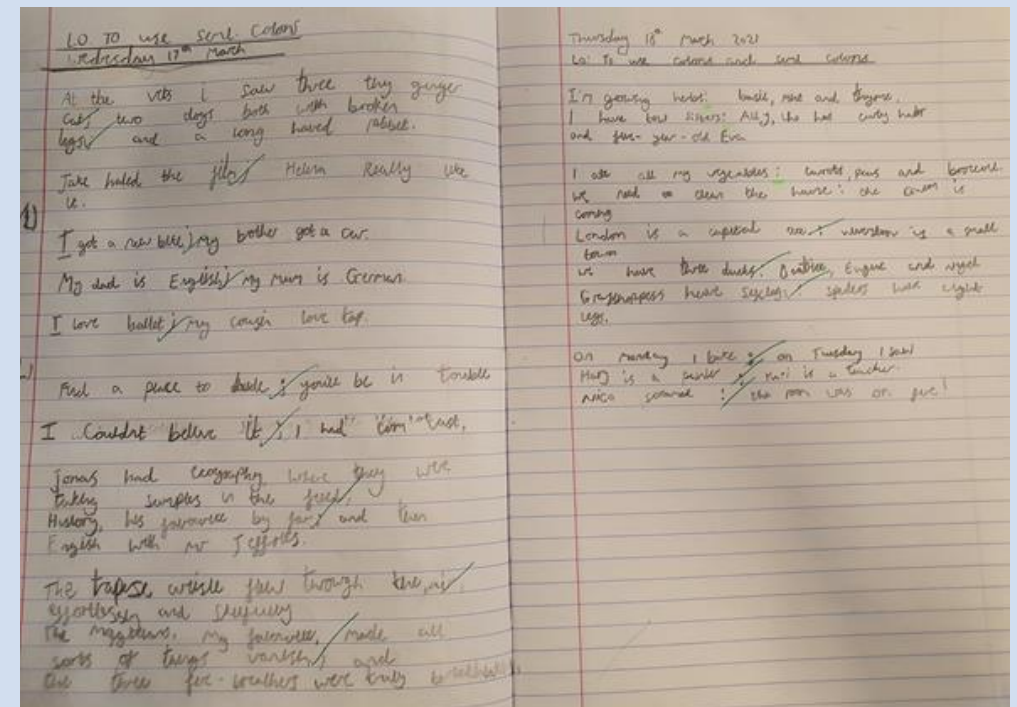 LO TO use semi colons
Wednesday 17th March
At the vets I saw three tiny ginger
cats; two dogs both with broken
legs; and a long haired rabbit.
Jake hated the film; Helena Really like
it.
I got a new bike; my bother got a car.
My dad is English; my mum is German.
I love ballet; my cousin love tap.
Find a place to hide; you'll be in trouble
I Couldnt belive it; I had com last,
Jonas had Geography, where they were
taking samples in the field;
History, his favourite by far; and then
English with Mr Jeffries.
The trapise artist flew through the air
effortlessly and
The my favourite, made all
sorts of things vanish; and
the three fire-breathers were truly
Thursday 18th March 2021
Lo: To use colons and semi colons
I'm growing herbs: basil, mint and thyme.
I have two sisters: Ally, who has curly hair
and five-year-old Eva
I ate all my vegetables: carrots, peas and broccoli.
we need to clean the house: the is
coming
London is a capital ; is a small
town
we have three ducks: Eugine and
Grasshoppers have ; spiders have eight
legs.
On Monday I bike; on Tuesday I
is a ; is a teacher.
: the room was on fire!